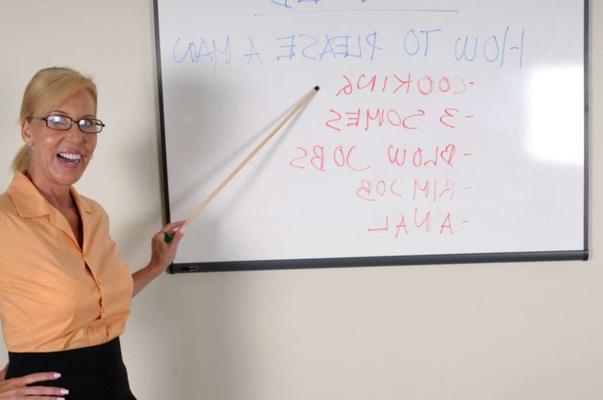 HOW TO PLEASE A MAN
-COOKING
-3 SOMES
-BLOW JOBS
-RIM JOB
-ANAL